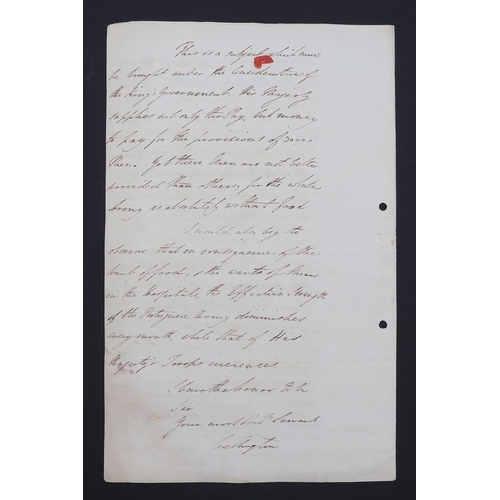 This is a subject which must
be brought under the Consideration of
the King's Government. His Majesty
supplies not only the Pay, but money
to pay for the provisions of 30000
Men. Yet these Men are not better
provided than others, for the whole
Army is absolutely without food
I would also beg to
observe that in consequence of the
want of food, & the wants of Means
in the Hospitals, the Effective Strength
of the Portuguese Army diminishes
every month, while that of His
Majesty's Troops increases.
I have the honor &c
Sir
Your most Servant
Wellington